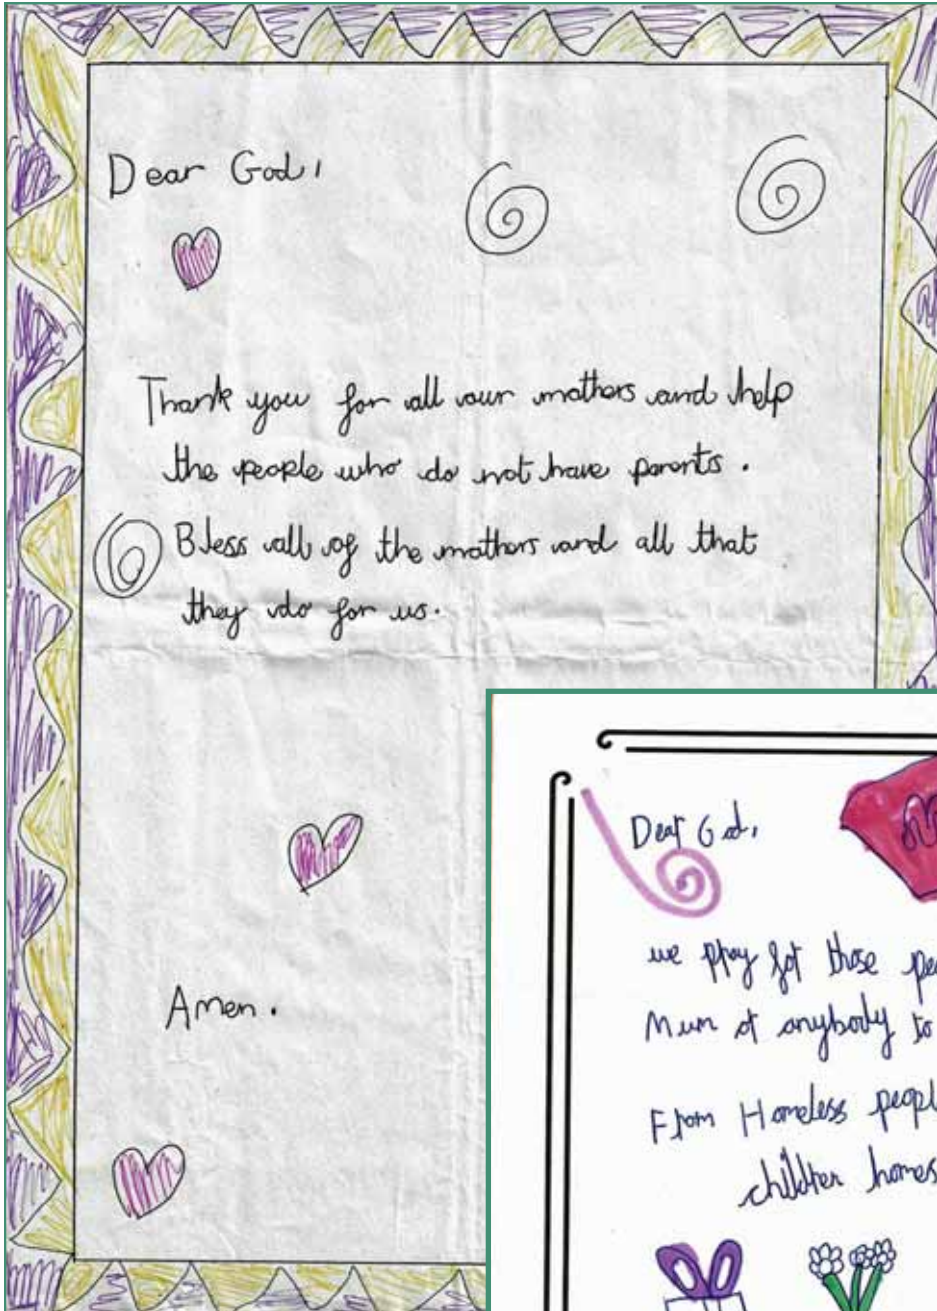 Dear God,
Thank you for all our mothers and help
the people who do not have parents.
Bless all of the mothers and all that
they do for us.
Amen.
Dear God,
we pray for those
Mum or anybody to
From Homeless
children homes